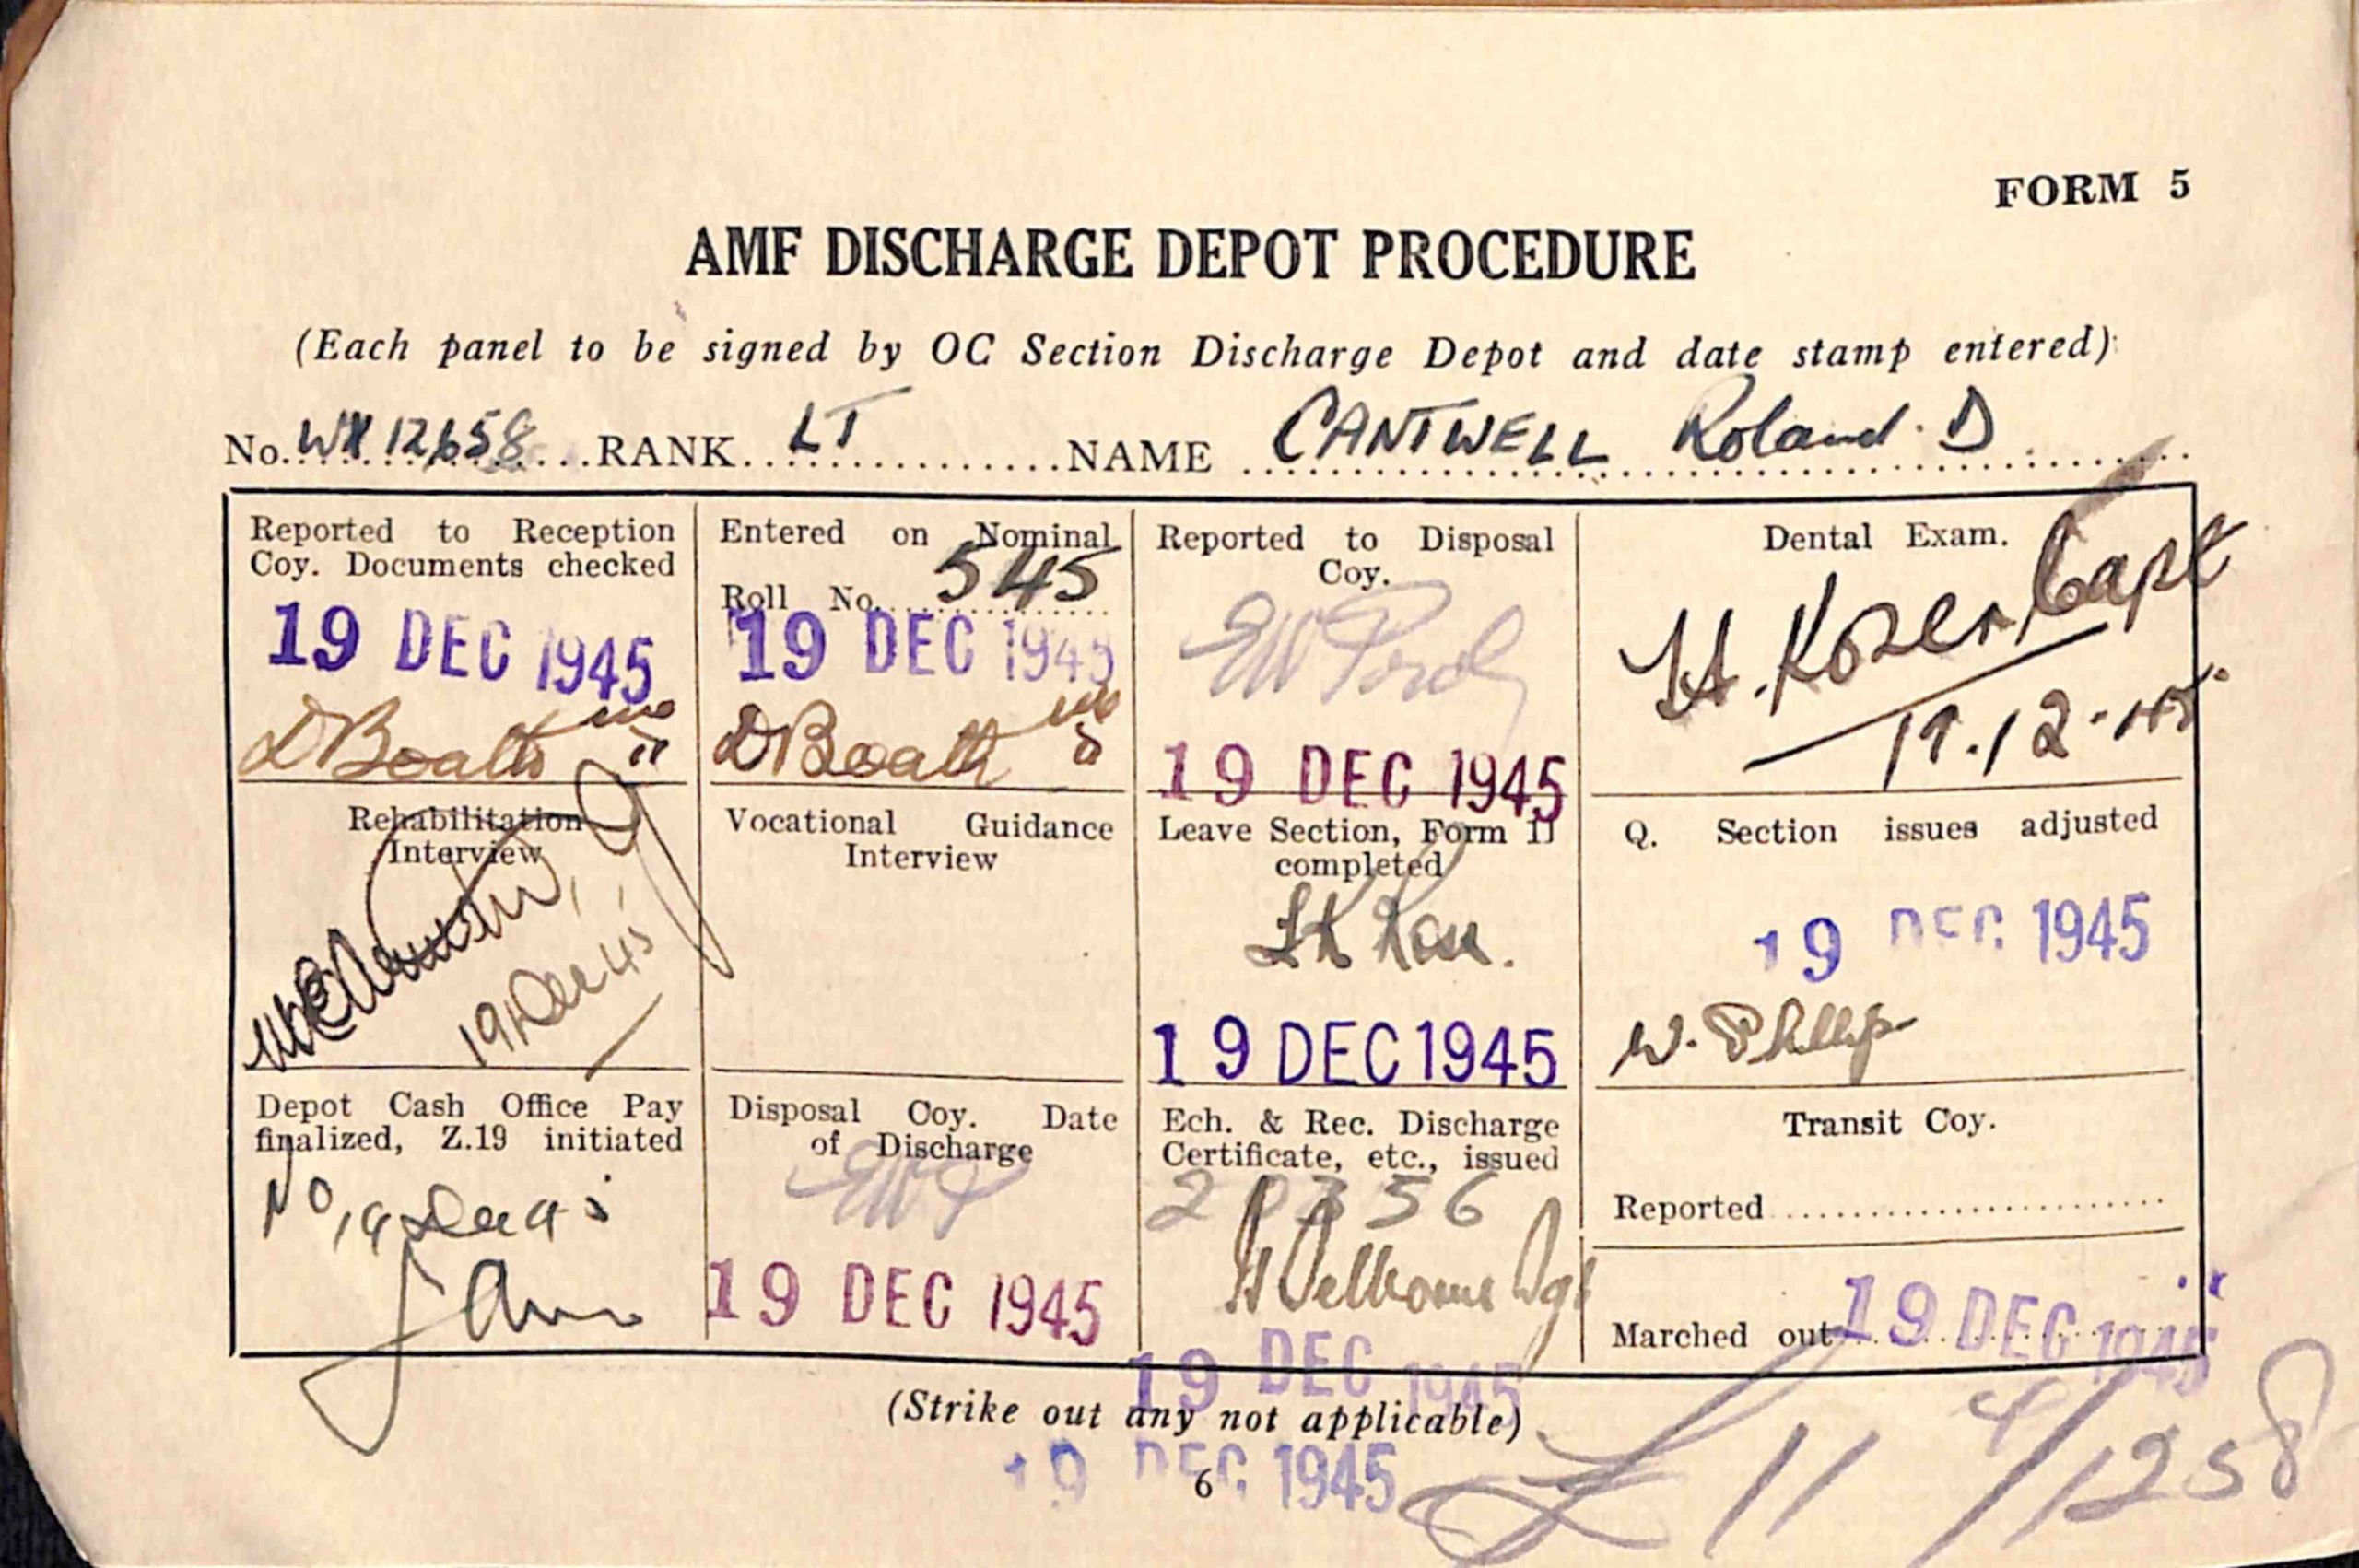 FORM 5
AMF DISCHARGE DEPOT PROCEDURE
(Each panel to be signed by OC Section Discharge Depot and date stamp entered)
No. WX 12658 RANK LT NAME CANTWELL Roland. D
Reported to Reception
Coy. Documents checked
19 DEC 1945
D Boath
Entered on Nominal
Roll No. 545
19 DEC 1945
D Boath
Reported to Disposal
Coy.
19 DEC 1945
Dental Exam.
Capt
19.12.45
Rehabilitation
Interview
19 Dec 45
Vocational Guidance
Interview
Leave Section, Form 11
completed
19 DEC 1945
Q. Section issues adjusted
19 DEC 1945
W. Phillip
Depot Cash Office Pay
finalized, Z.19 initiated
Disposal Coy. Date
of Discharge
19 DEC 1945
Ech. & Rec. Discharge
Certificate, etc., issued
Sgt
19 DEC 1945
Transit Coy.
Reported
Marched out 19 DEC 1945
(Strike out any not applicable)
19 DEC 1945
6